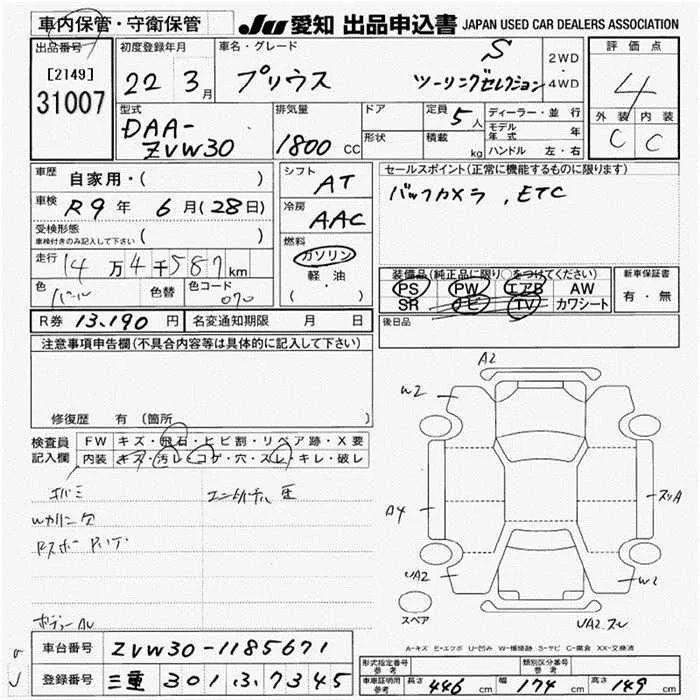 車内保管・守衛保管 JU 愛知 出品申込書 JAPAN USED CAR DEALERS ASSOCIATION
出品番号 [2149] 31007
初度登録年月 22 3月
車名・グレード プリウス S ツーリングセレクション
2WD・4WD
評価点 4
外装 C 内装 C
型式 DAA-ZVW30
排気量 1800 CC
ドア 形状
定員 5人 積載 kg
ディーラー・並行
モデル年式 年
ハンドル 左・右
車歴 自家用・( )
車検 R9年 6月(28日)
受検形態 車検付きのみ記入して下さい ( )
走行 14万4千587km
色 パール 色替 色コード 070
シフト AT
冷房 AAC
燃料 ガソリン 軽油 ( )
セールスポイント(正常に機能するものに限ります)
バックカメラ、ETC
装備品(純正品に限り○をつけてください)
PS PW エアB AW
SR ナビ TV カワシート
新車保証書 有・無
後日品
R券 13,190円 名変通知期限 月 日
注意事項申告欄(不具合内容等は具体的に記入して下さい)
修復歴 有 (箇所
検査員記入欄 FW キズ・飛石・ヒビ割・リペア跡・X要
内装 キズ・汚レ・コゲ・穴・スレ・キレ・破レ
A2
W2
スリA
UA2
W2
スペア
A-キズ E-エクボ U-凹み W-補修跡 S-サビ C-腐食 XX-交換済
車台番号 ZVW30-1185671
登録番号 三重 301 ふ 7345
形式指定番号 参考 類別区分番号 参考
車車証明用 参考 長さ 446 cm 幅 174 cm 高さ 149 cm